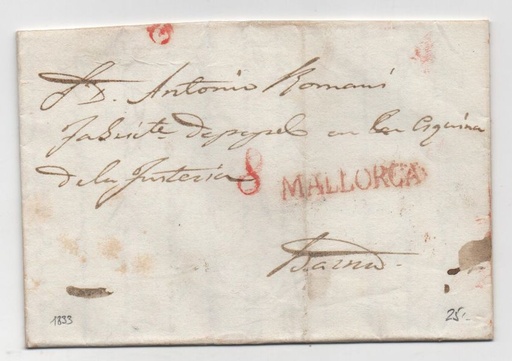 Sr. D. Antonio Romani
Fabricte. de papel en la Esquina
de la
8 MALLORCA
Barna.
1833
25.-